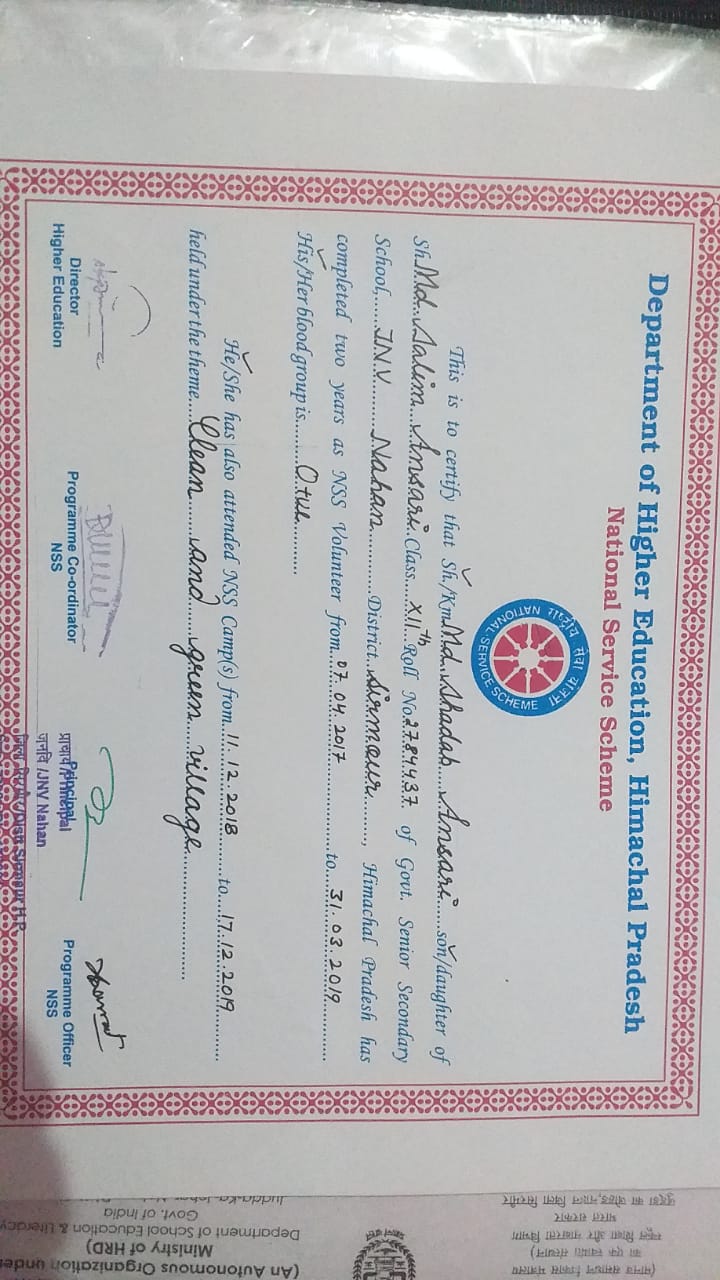 Department of Higher Education, Himachal Pradesh
National Service Scheme
राष्ट्रीय सेवा योजना
NATIONAL SERVICE SCHEME
This is to certify that Sh./Km Md. Shadab Ansari son/daughter of
Sh. Md. Salim Ansari Class XII th Roll No. 2784437 of Govt. Senior Secondary
School, JNV Nahan District Sirmaur, Himachal Pradesh has
completed two years as NSS Volunteer from 07.04.2017 to 31.03.2019
His/Her blood group is O+ve
He/She has also attended NSS Camp(s) from 11.12.2018 to 17.12.2019
held under the theme Clean and green village
Director
Higher Education
Programme Co-ordinator
NSS
Principal
प्राचार्य/Principal
जनवि /JNV Nahan
जिला सिरमौर/Distt Sirmaur H.P.
Programme Officer
NSS
(An Autonomous Organization under
Ministry of HRD)
Department of School Education & Literacy
Govt. of India
का एक स्वायत्त संस्थान)
स्कूल शिक्षा और साक्षरता विभाग
भारत सरकार